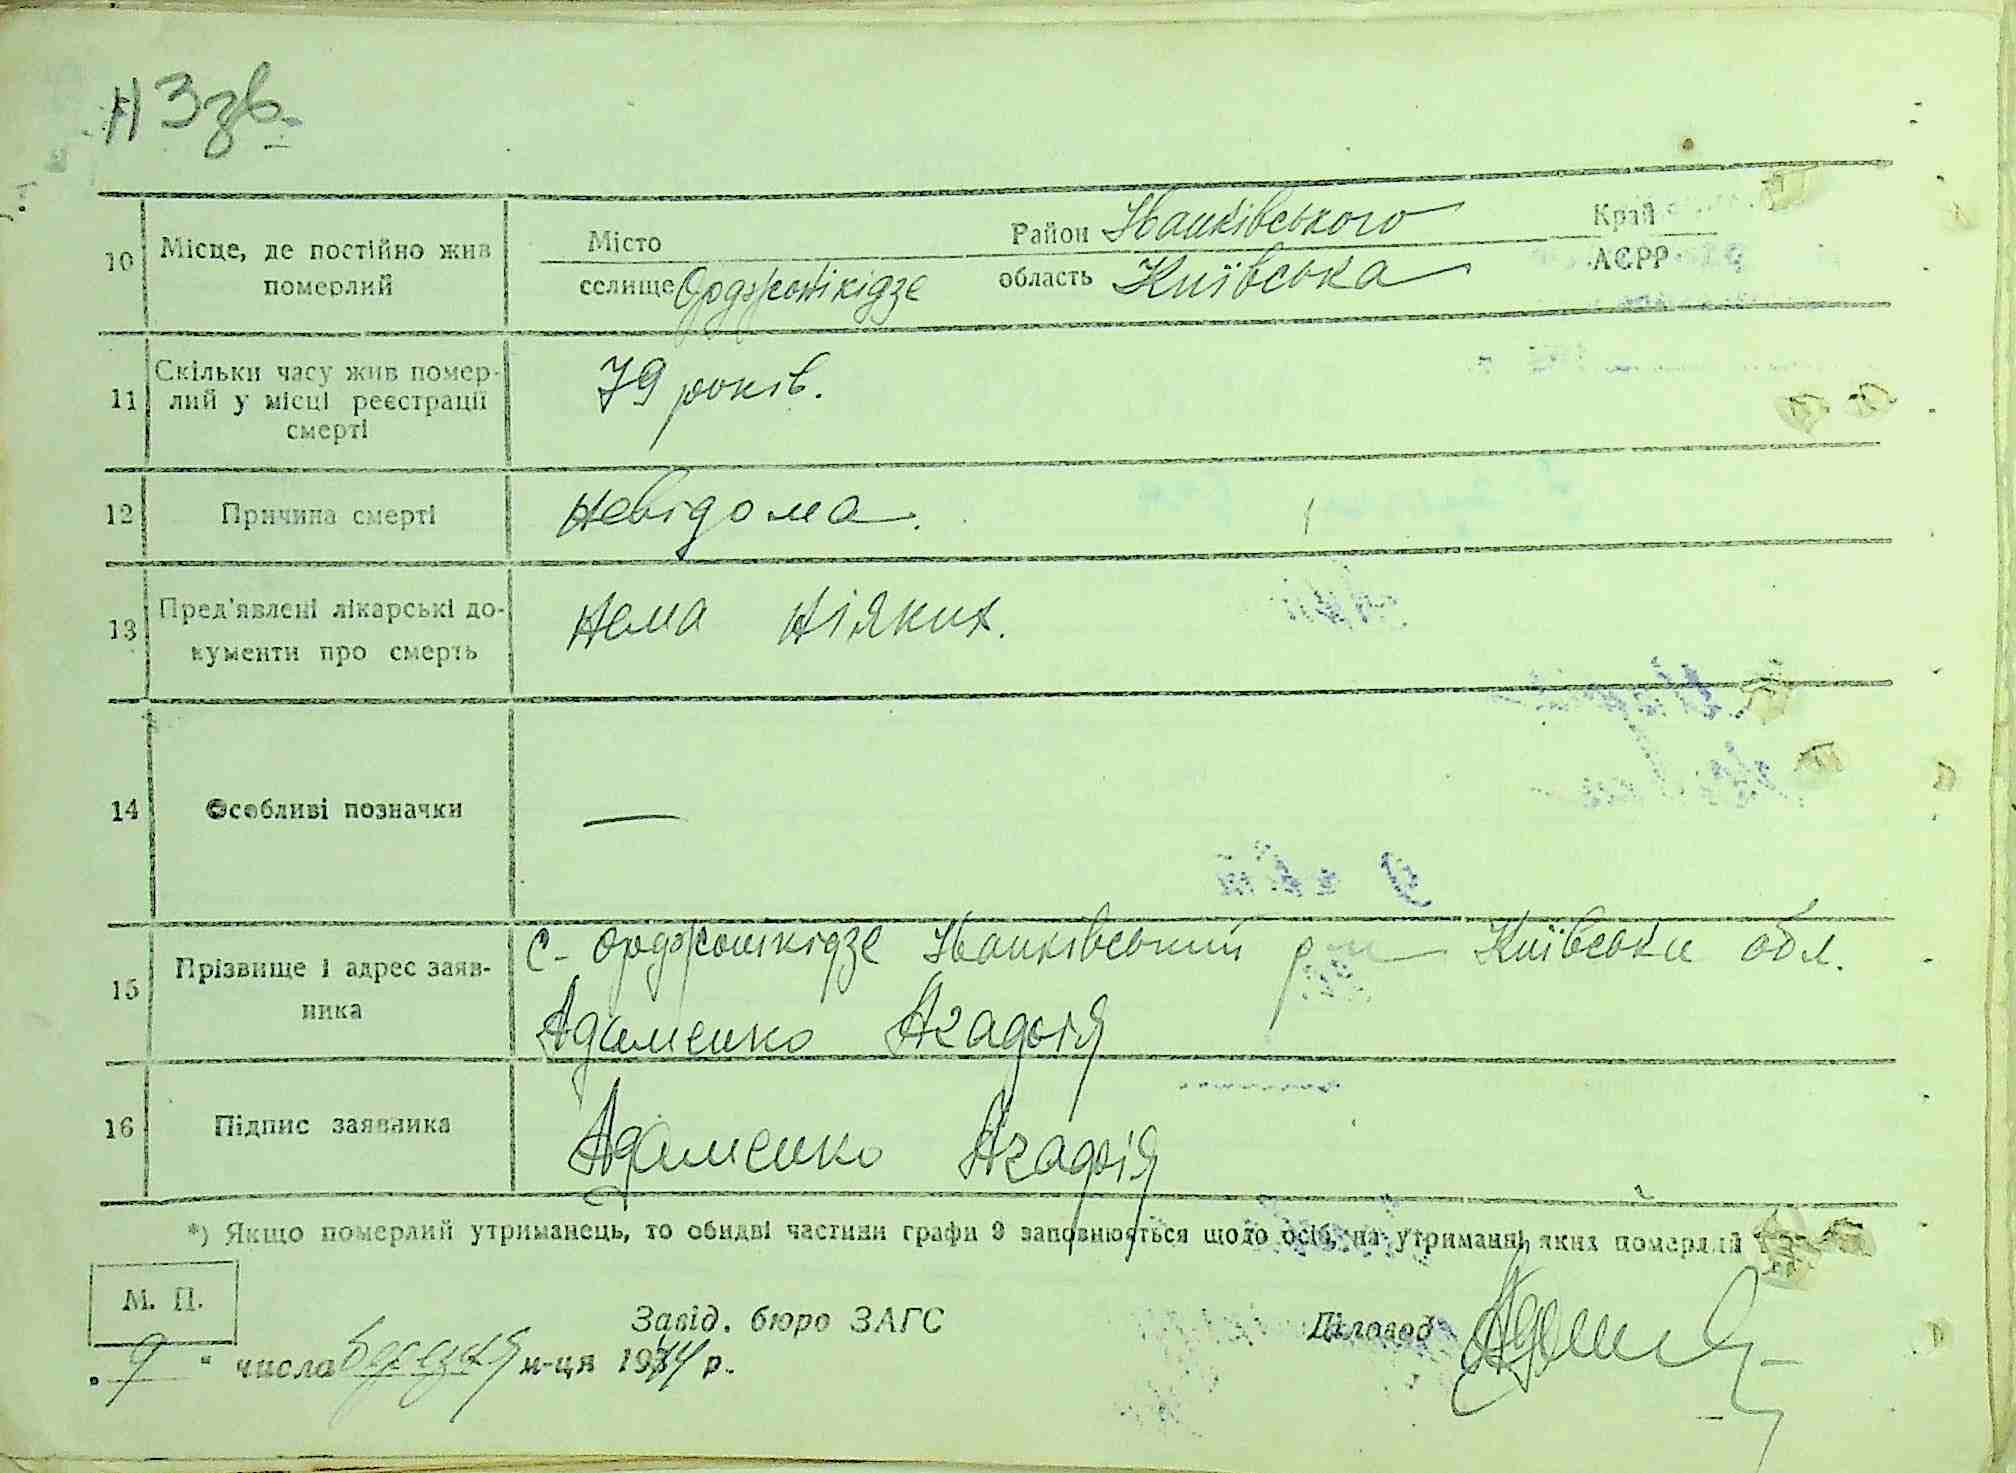 № 3 зв.
10 Місце, де постійно жив померлий
Місто Район Іванківського Край
селище Орджонікідзе область Київська АСРР
11 Скільки часу жив помер-
лий у місці реєстрації
смерті
79 років.
12 Причина смерті невідома.
13 Пред'явлені лікарські до-
кументи про смерть
нема ніяких.
14 Особливі позначки —
15 Прізвище і адрес заяв-
ника
с. Орджонікідзе Іванківський р-н Київська обл.
Адаменко Агафія
16 Підпис заявника Адаменко Агафія
*) Якщо померлий утриманець, то обидві частини графи 9 заповнюється щодо осіб, на утриманні яких померлий
М. П.
Завід. бюро ЗАГС Діловод
"9" числа березня м-ця 1944 р.